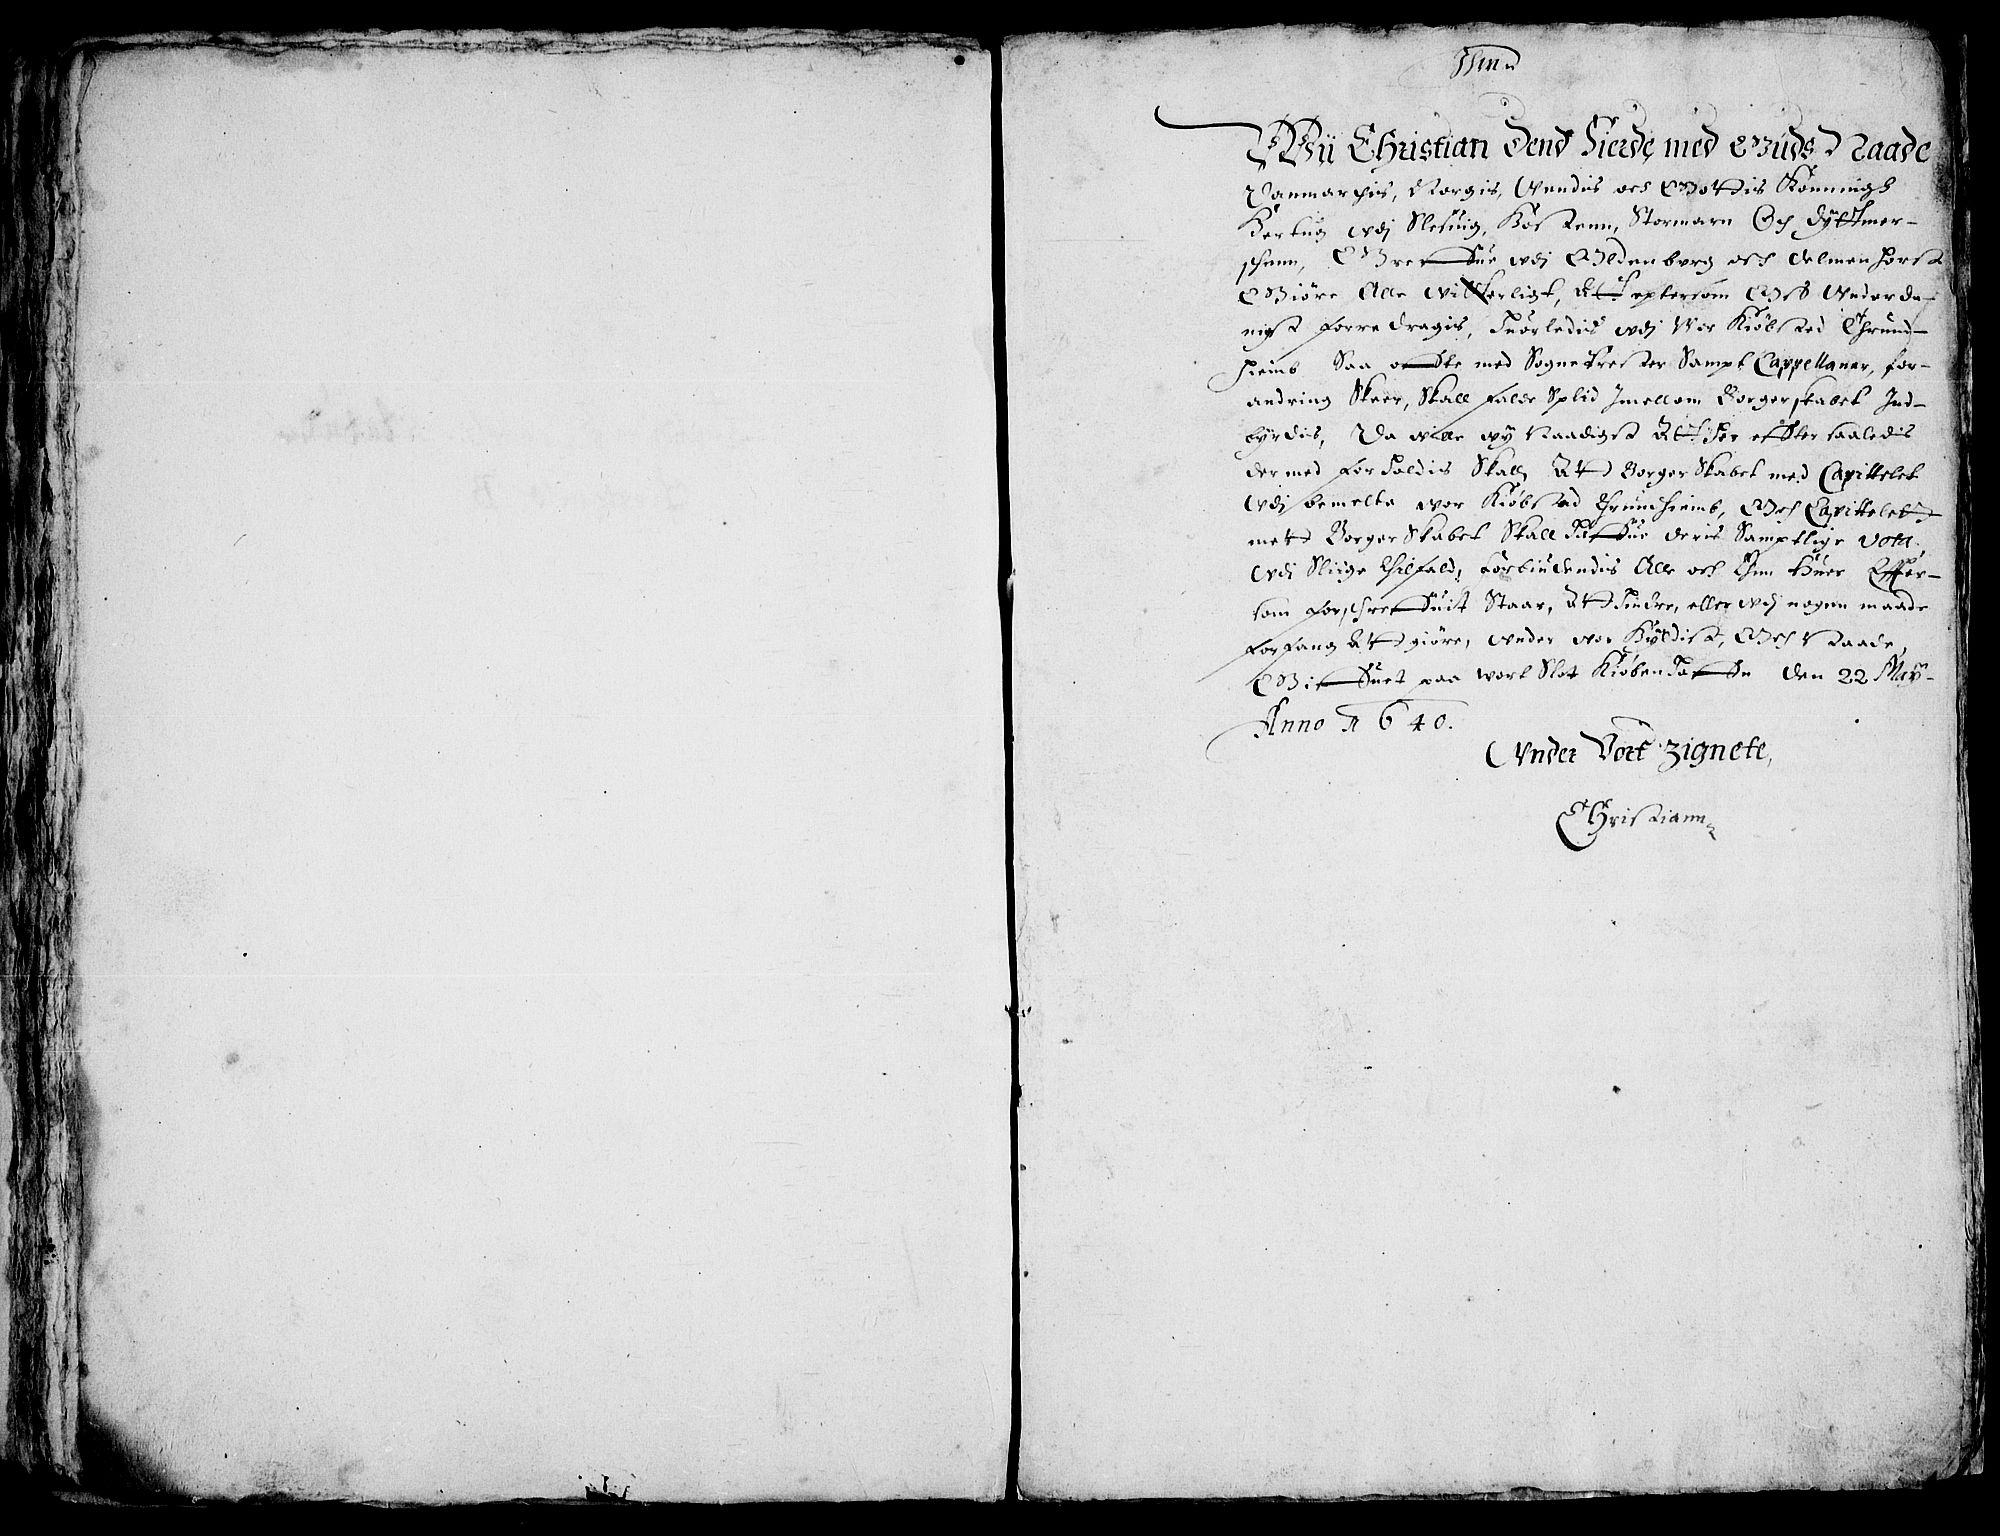 Wii Christian Dend Fierde med Guds Naade
Danmarchis, Norgis, Wendis och Gottis Konningh
Hertug vdj Slesuig, Holstenn, Stormarn Och Dyttmer-
schenn, Greffue vdj Oldenburg och delmenhorst
Giöre Alle vitterligt, Att eptersom Oss Vnderda-
nigst forredragis, huorledis vdj Vor Kiöbsted Thrund-
hieimb Saa offte med Sogneprester Sampt Cappellaner, for-
andring Skeer, Skall falde Splid Jmellom Borgerskabet Ind-
byrdis, Da wille wy Naadigst Att her effter saaledis
dermed forholdis Skall, At Borger Skabet med Capittelet
vdj bemelte vor Kiöbsted Thrundhieimb, Och Capittelet
mett Borger Skabet Skall haffue deris Samptlige vota,
vdj Sliige thilfald, forbiudendis Alle och Enn huer Effter-
som forschreffuit Staar, At hindre, eller vdj nogen maade
forfang Att giöre, vnder vor Hyldist, Och Naade,
Giffuet paa wort Slot Kiöbenhaffn den 22 May
Anno 1640.
Vnder Vort zignete,
Christiann